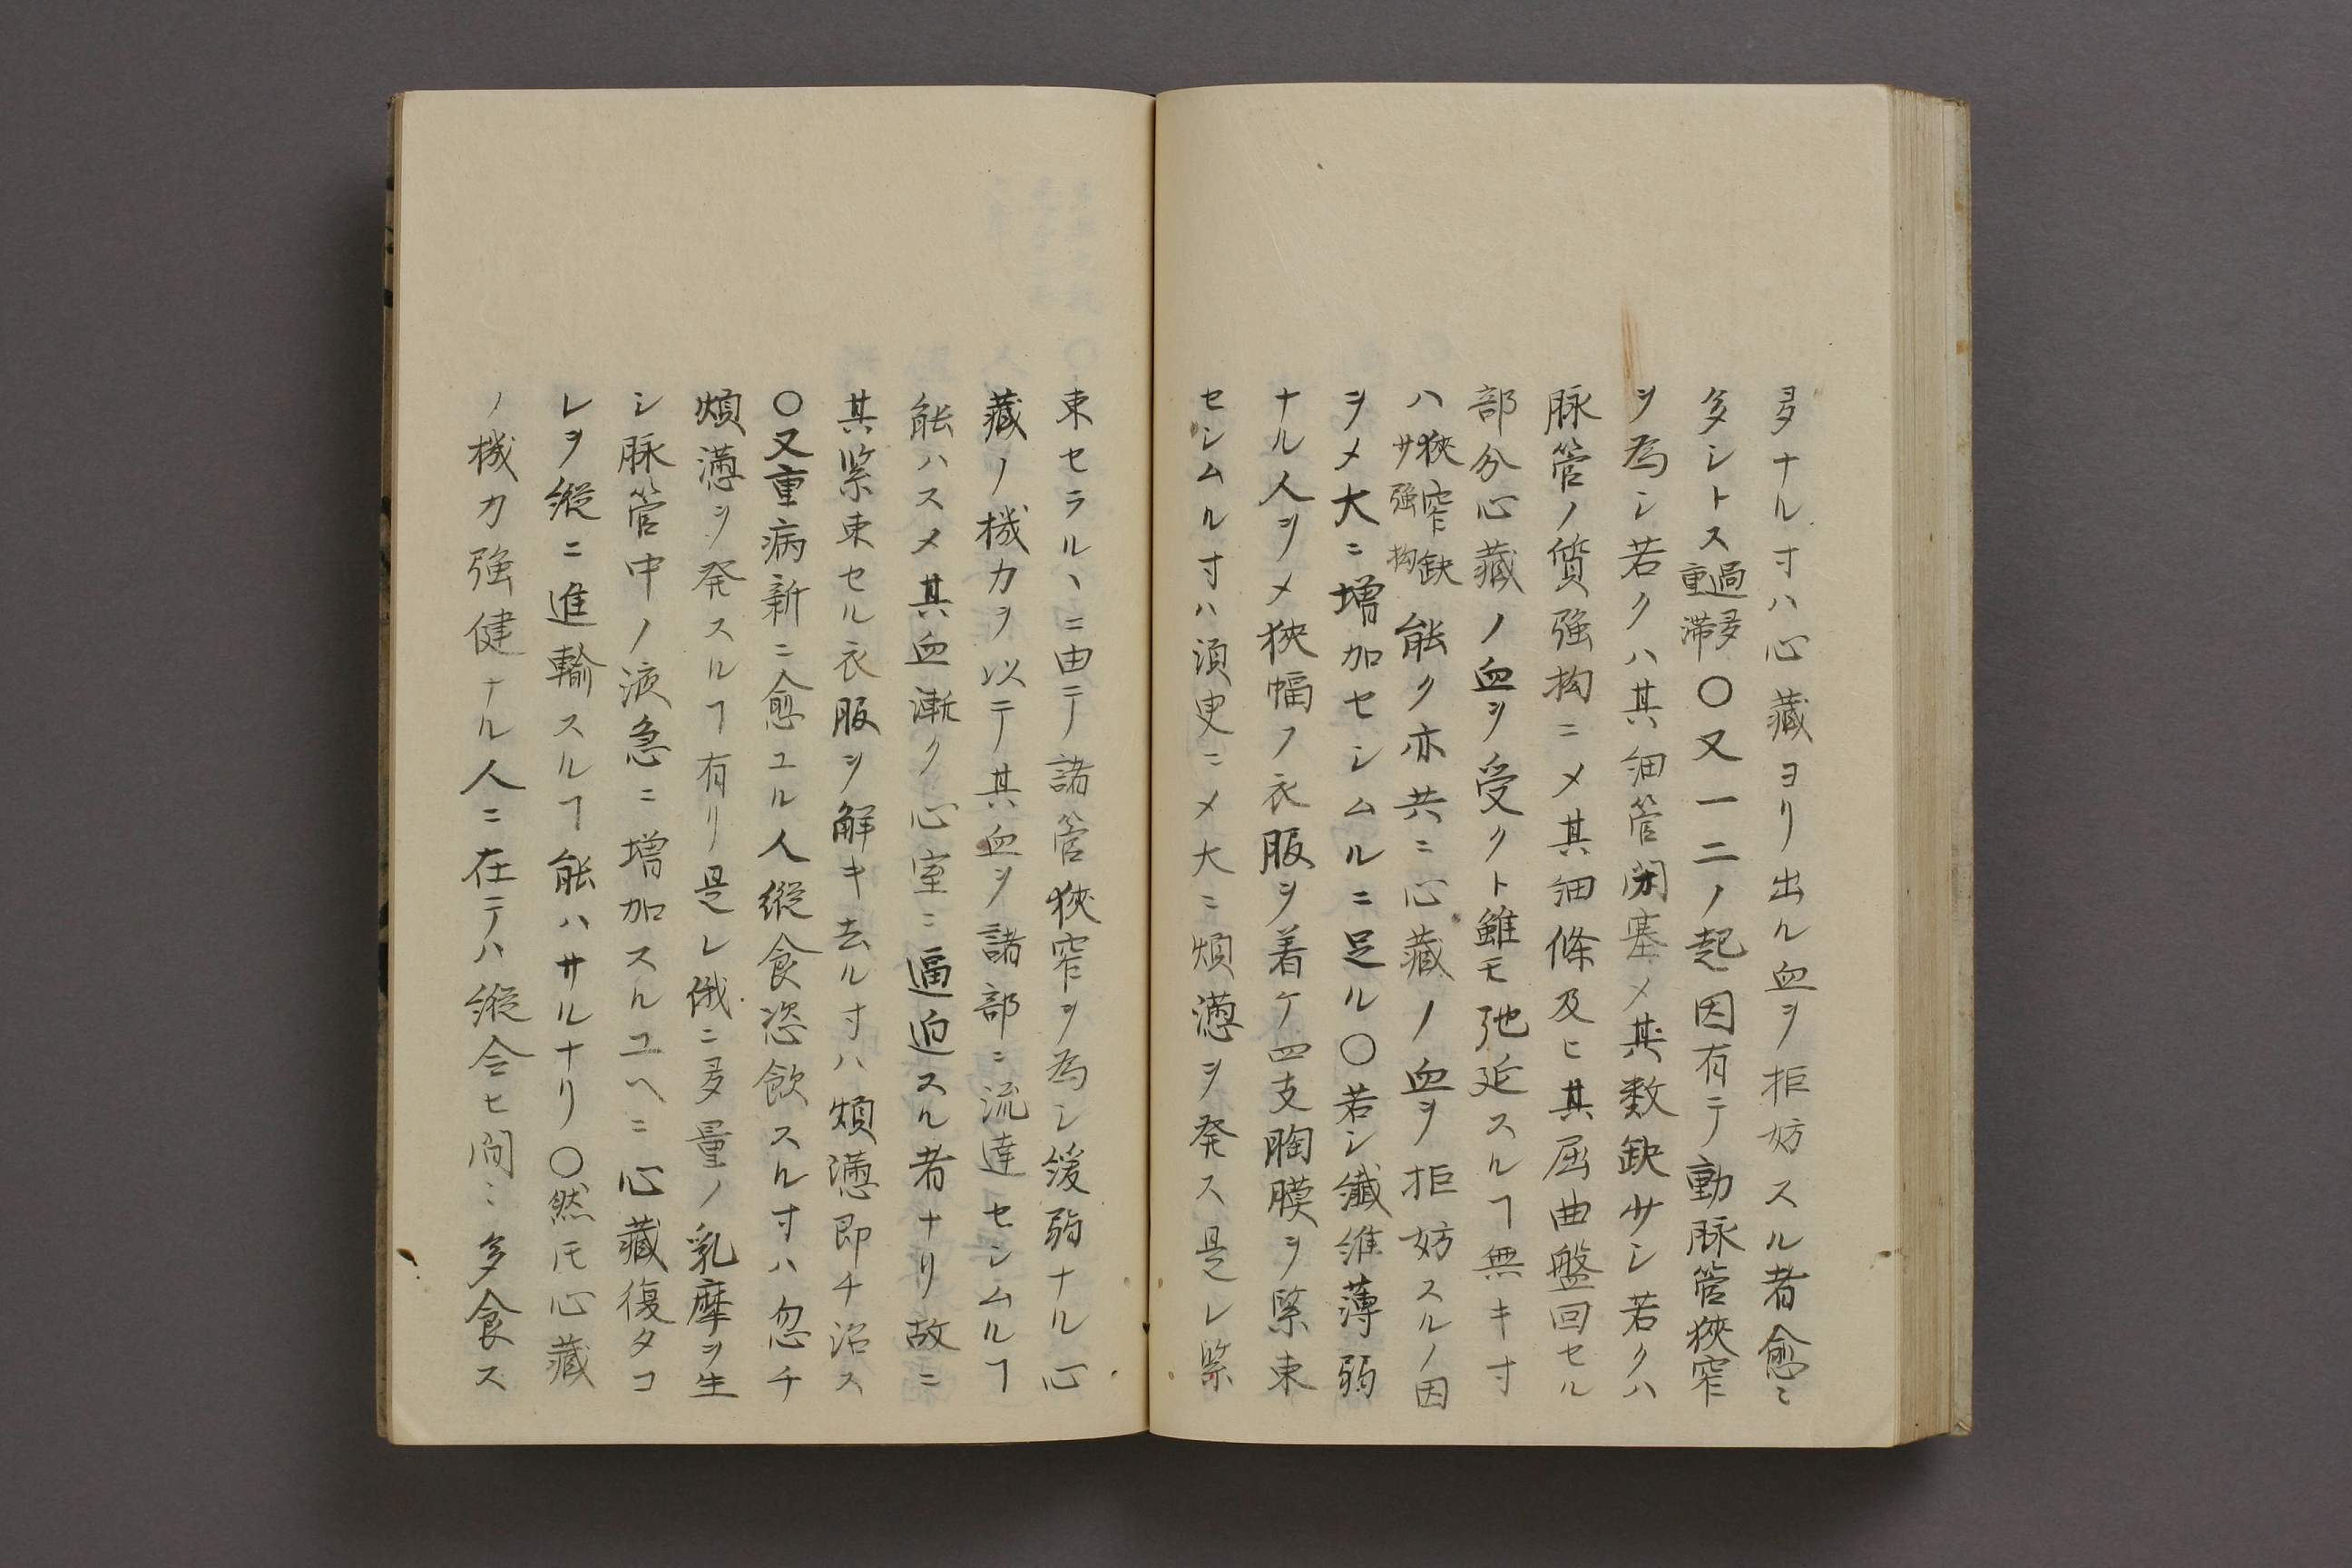 多ナル寸ハ心藏ヨリ出ル血ヲ拒妨スル者愈ミ
多シトス過多重滞〇又一二ノ起因有テ動脉管狹窄
ヲ為シ若クハ其細管閉塞メ其数缺少シ若クハ
脉管ノ質強拘ニメ其細條及ヒ其屈曲盤回セル
部分心藏ノ血ヲ受クト雖モ弛延スルヿ無キ寸
ハ狹窄缺少強拘能ク亦共ニ心藏ノ血ヲ拒妨スルノ因
ヲメ大ニ増加セシムルニ足ル〇若シ纖維薄弱
ナル人ヲメ狹幅ノ衣服ヲ着ケ四支胸膜ヲ緊束
センムル寸ハ須臾ニメ大ニ煩懣ヲ発ス是レ緊
束セラルヽニ由テ諸管狹窄ヲ為シ緩弱ナル心
藏ノ機力ヲ以テ其血ヲ諸部ニ流達センムルヿ
能ハスメ其血漸ク心室ニ逼迫スル者ナリ故ニ
其緊束セル衣服ヲ解キ去ル寸ハ煩懣即チ治ス
〇又重病新ニ愈ユル人縦食恣飲スル寸ハ忽チ
煩懣ヲ発スルヿ有リ是レ俄ニ多量ノ乳摩ヲ生
シ脉管中ノ液急ニ増加スルユヘニ心藏復タコ
レヲ縦ニ進輸スルヿ能ハサルナリ〇然𪜈心藏
ノ機力強健ナル人ニ在テハ縦令ヒ間ミ多食ス